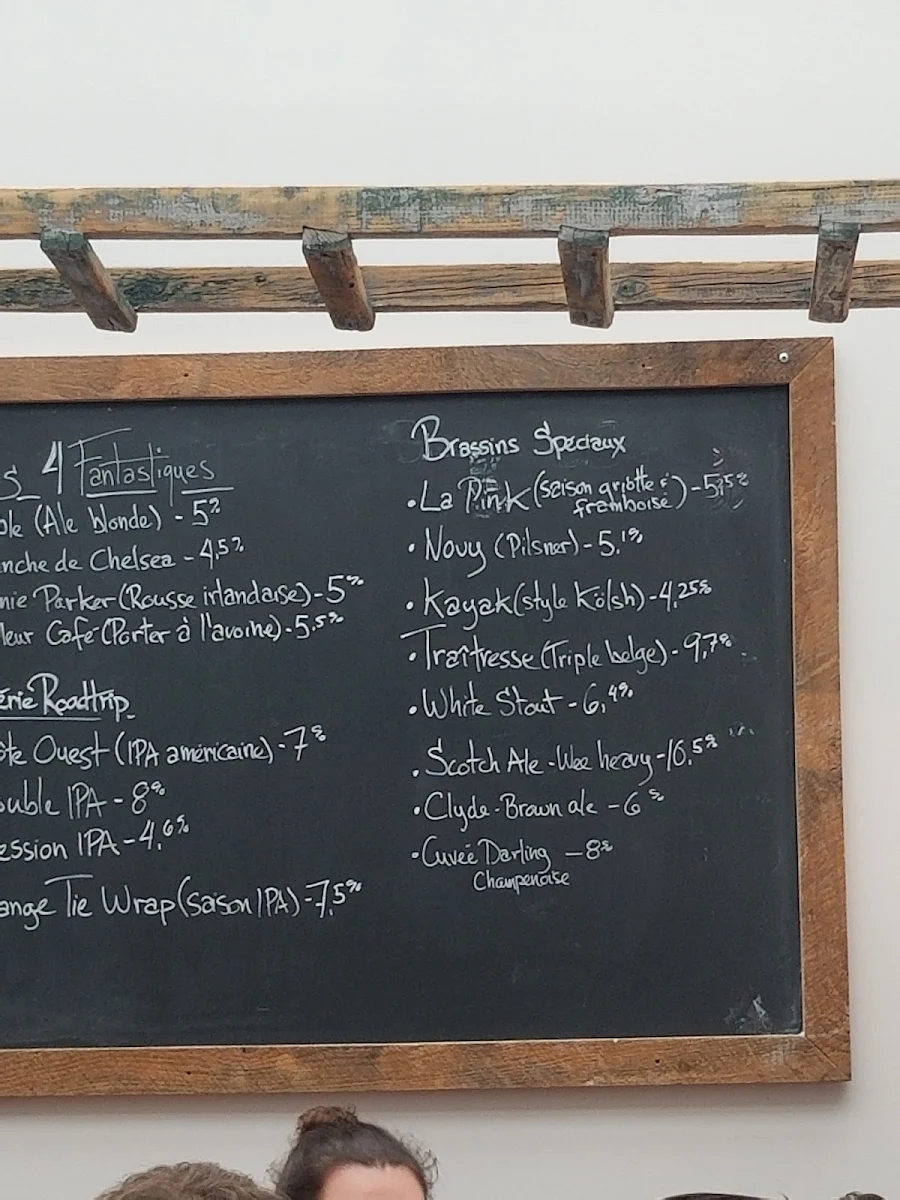 s 4 Fantastiques
ble (Ale blonde) - 5%
nche de Chelsea - 4,5%
nie Parker (Rousse irlandaise) - 5%
leur Café (Porter à l'avoine) - 5,5%
érie Roadtrip
te Ouest (IPA américaine) - 7%
ouble IPA - 8%
ession IPA - 4,6%
ange Tie Wrap (saison IPA) - 7,5%
Brassins Spéciaux
• La Pink (saison griotte &
framboise) -
• Novy (Pilsner) - 5,1%
• Kayak (style Kölsh) - 4,25%
• Traîtresse (Triple belge) - 9,7%
• White Stout - 6,4%
• Scotch Ale - Wee heavy - 10,5%
• Clyde - Brown ale - 6%
• Cuveé Darling - 8%
Champenoise